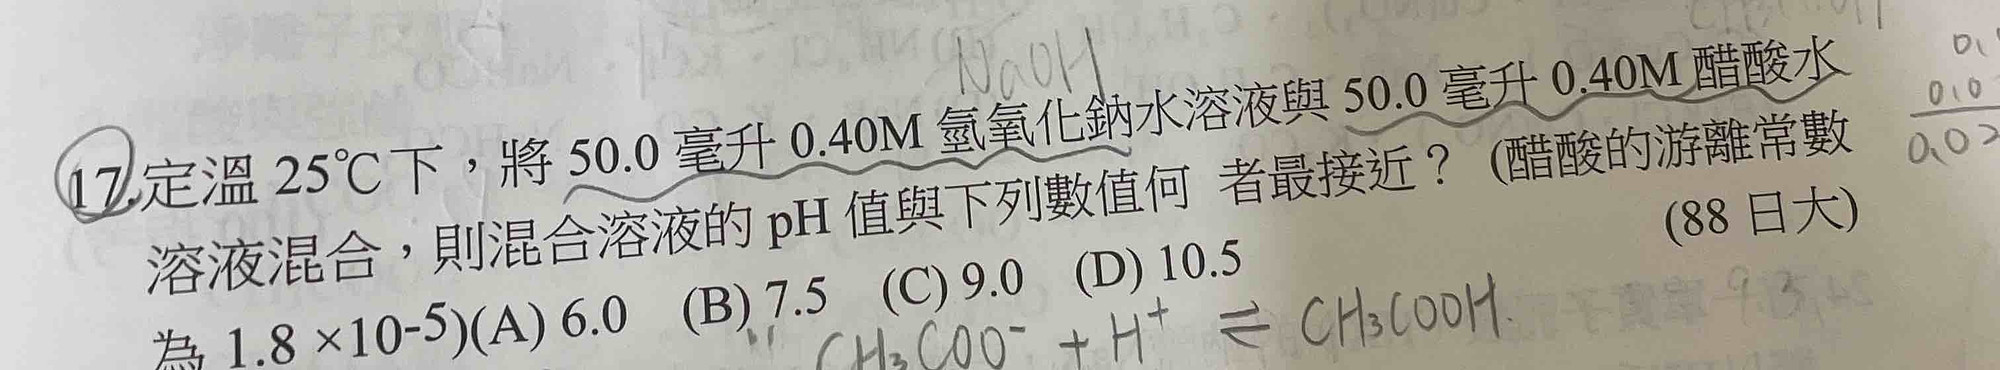 NaOH
17.定溫 25℃下，將 50.0 毫升 0.40M 氫氧化鈉水溶液與 50.0 毫升 0.40M 醋酸水
溶液混合，則混合溶液的 pH 值與下列數值何 者最接近？ (醋酸的游離常數
為 1.8 ×10-5)(A) 6.0 (B) 7.5 (C) 9.0 (D) 10.5 (88 日大)
CH₃COO⁻ + H⁺ ⇌ CH₃COOH.